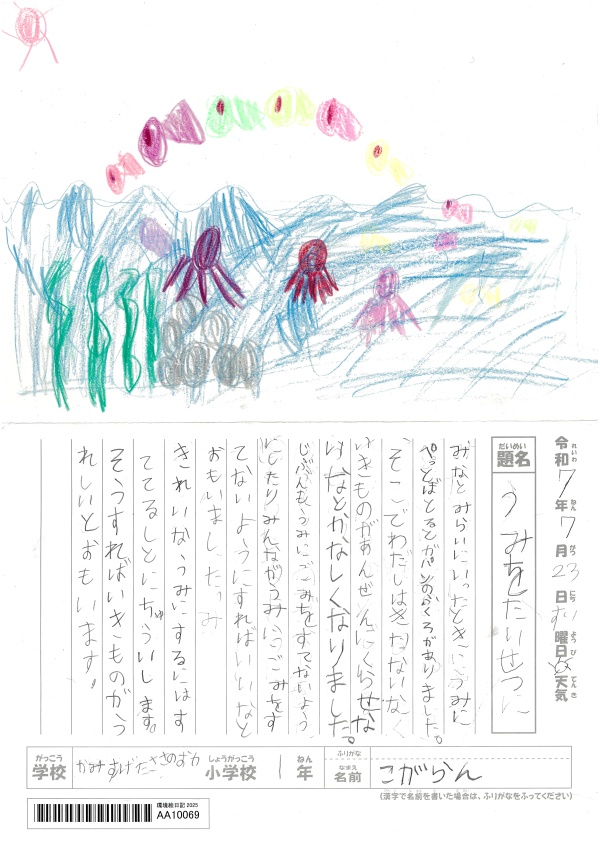 令和7年7月23日すい曜日天気
題名 うみをたいせつに
みなとみらいにいったときにうみに
ぺっとぼとるとかパンのふくろがありました。
そこでわたしはきたないなく
いきものがあんぜんにくらせな
いなとかなしくなりました。
じぶんもうみにごみをすてないよう
にしたりみんながうみにごみをす
てないようにすればいいなと
おもいましたうみ
きれいなうみにするにはす
ててるしとにちゅういします。
そうすればいきものがう
れしいとおもいます。
学校 かみすげたささのおか 小学校 1年 名前 こがらん
(漢字で名前を書いた場合は、ふりがなをふってください)
環境絵日記2025
AA10069